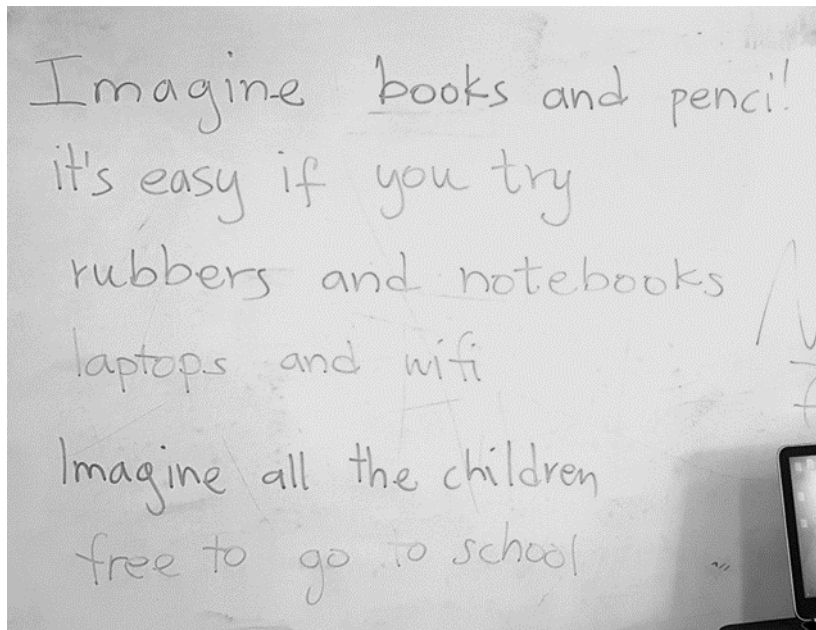 Imagine books and penci!
it's easy if you try
rubbers and notebooks
laptops and wifi
Imagine all the children
free to go to school